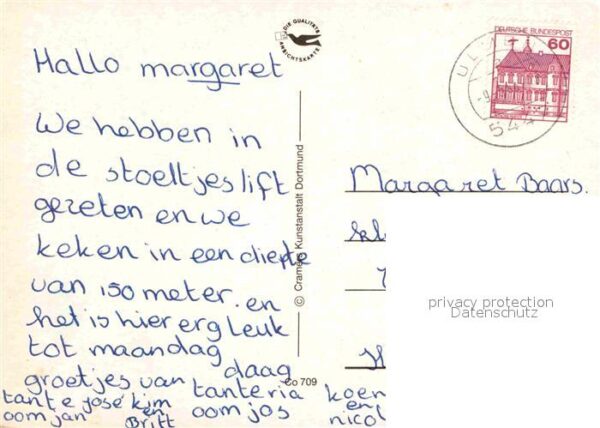 DIE QUALITÄTS
ANSICHTSKARTE
DEUTSCHE BUNDESPOST
60
544
Hallo margaret
We hebben in
de stoeltjeslift
gezeten en we
keken in een diepte
van 150 meter. en
het is hier erg leuk
tot maandag
daag
groetjes van tanteria koen
tante josé kim en
oomjan en Britt oomjos nicol
© Cramers Kunstanstalt Dortmund
Co 709
Margaret Baars.
privacy protection
Datenschutz